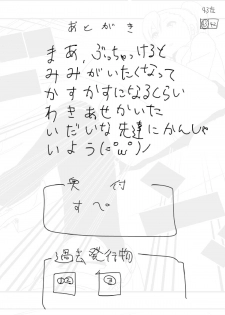 あとがき
まあ、ぶっちゃけると
みみがいたくなって
かすかすになるくらい
わきあせかいた
いだいな先達にかんしゃ
いよう(°ω°)ノ
奥付
過去発行物